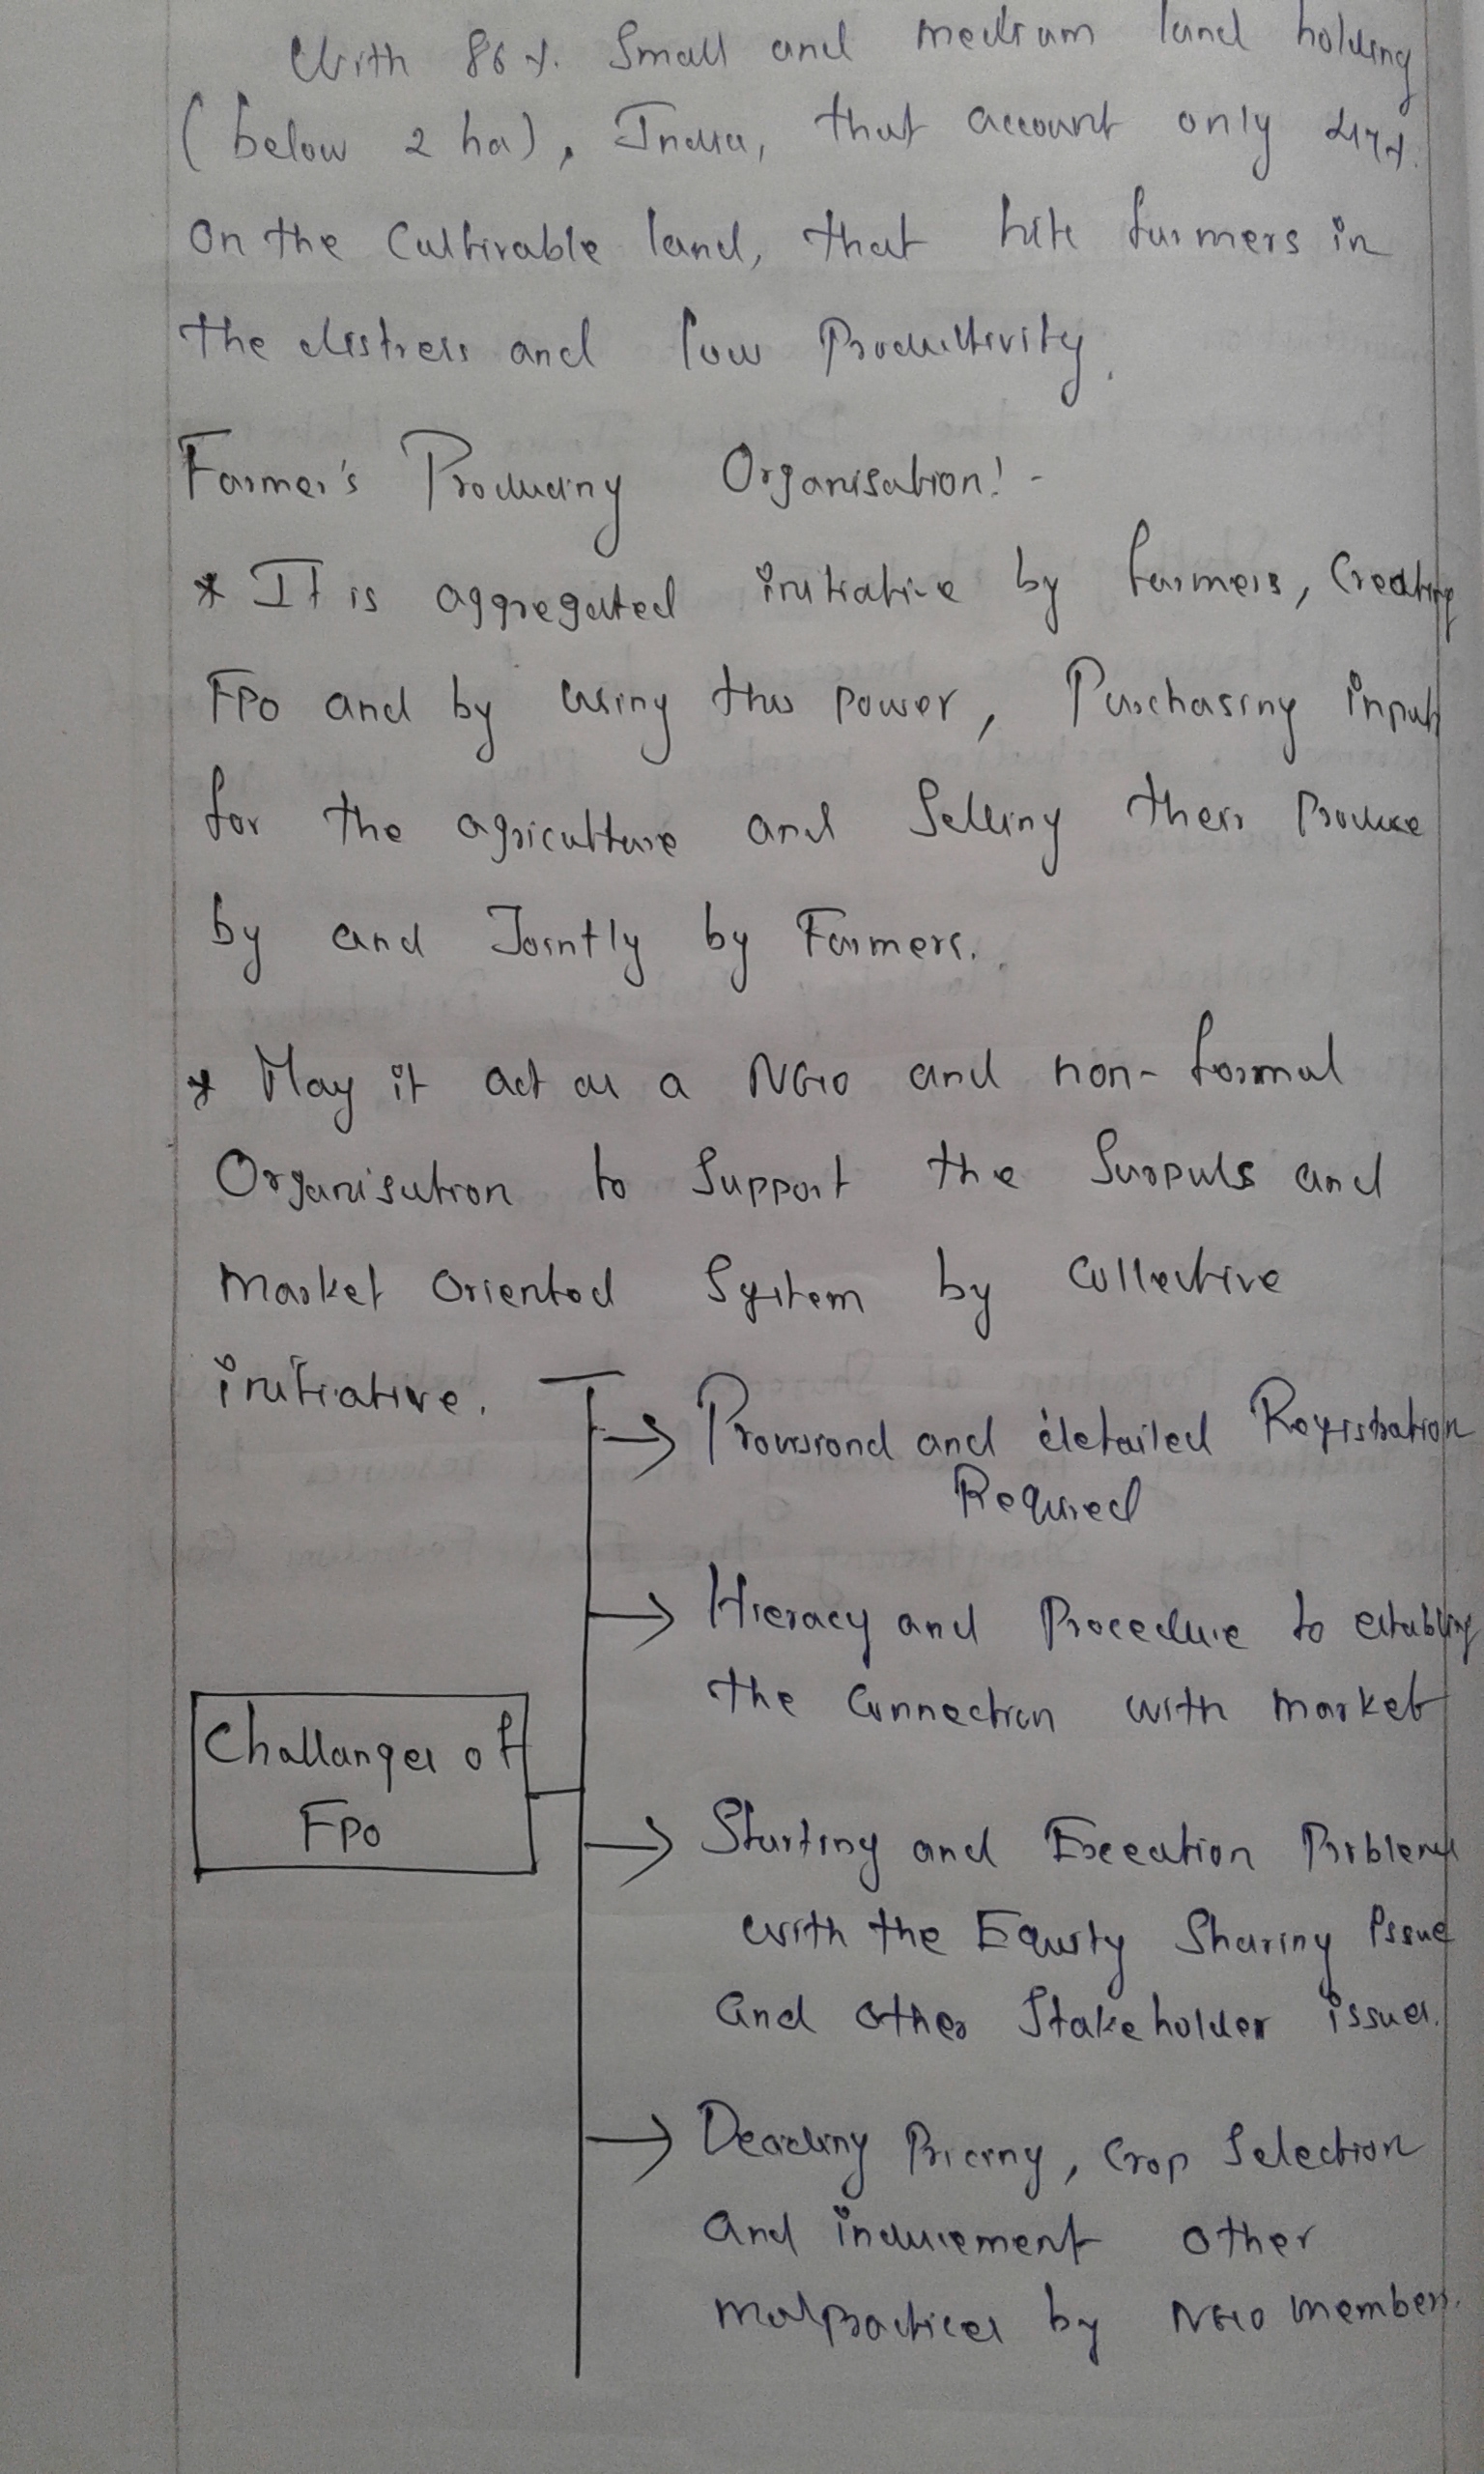 With 86%. Small and medium land holding
(below 2 ha), India, that account only 47%.
On the Cultivable land, that hite farmers in
the distress and low Productivity.
Farmer's Producing Organisation:-
* It is aggregated initiative by farmers, Creating
FPO and by using this power, Purchasing input
for the agriculture and Selling their Produce
by and Jointly by Farmers.
* May it act as a NGO and non-formal
Organisation to Support the Surpuls and
Market Oriented System by Collective
initiative.
Provisional and detailed Registration
Required
Hieracy and Procedure to
the Connection with market
Challanges of
FPO
Starting and Execution Problems
with the Equity Sharing issue
and other Stakeholder issues.
Deciding Pricing, Crop Selection
and inducement other
malpractices by NGO members.